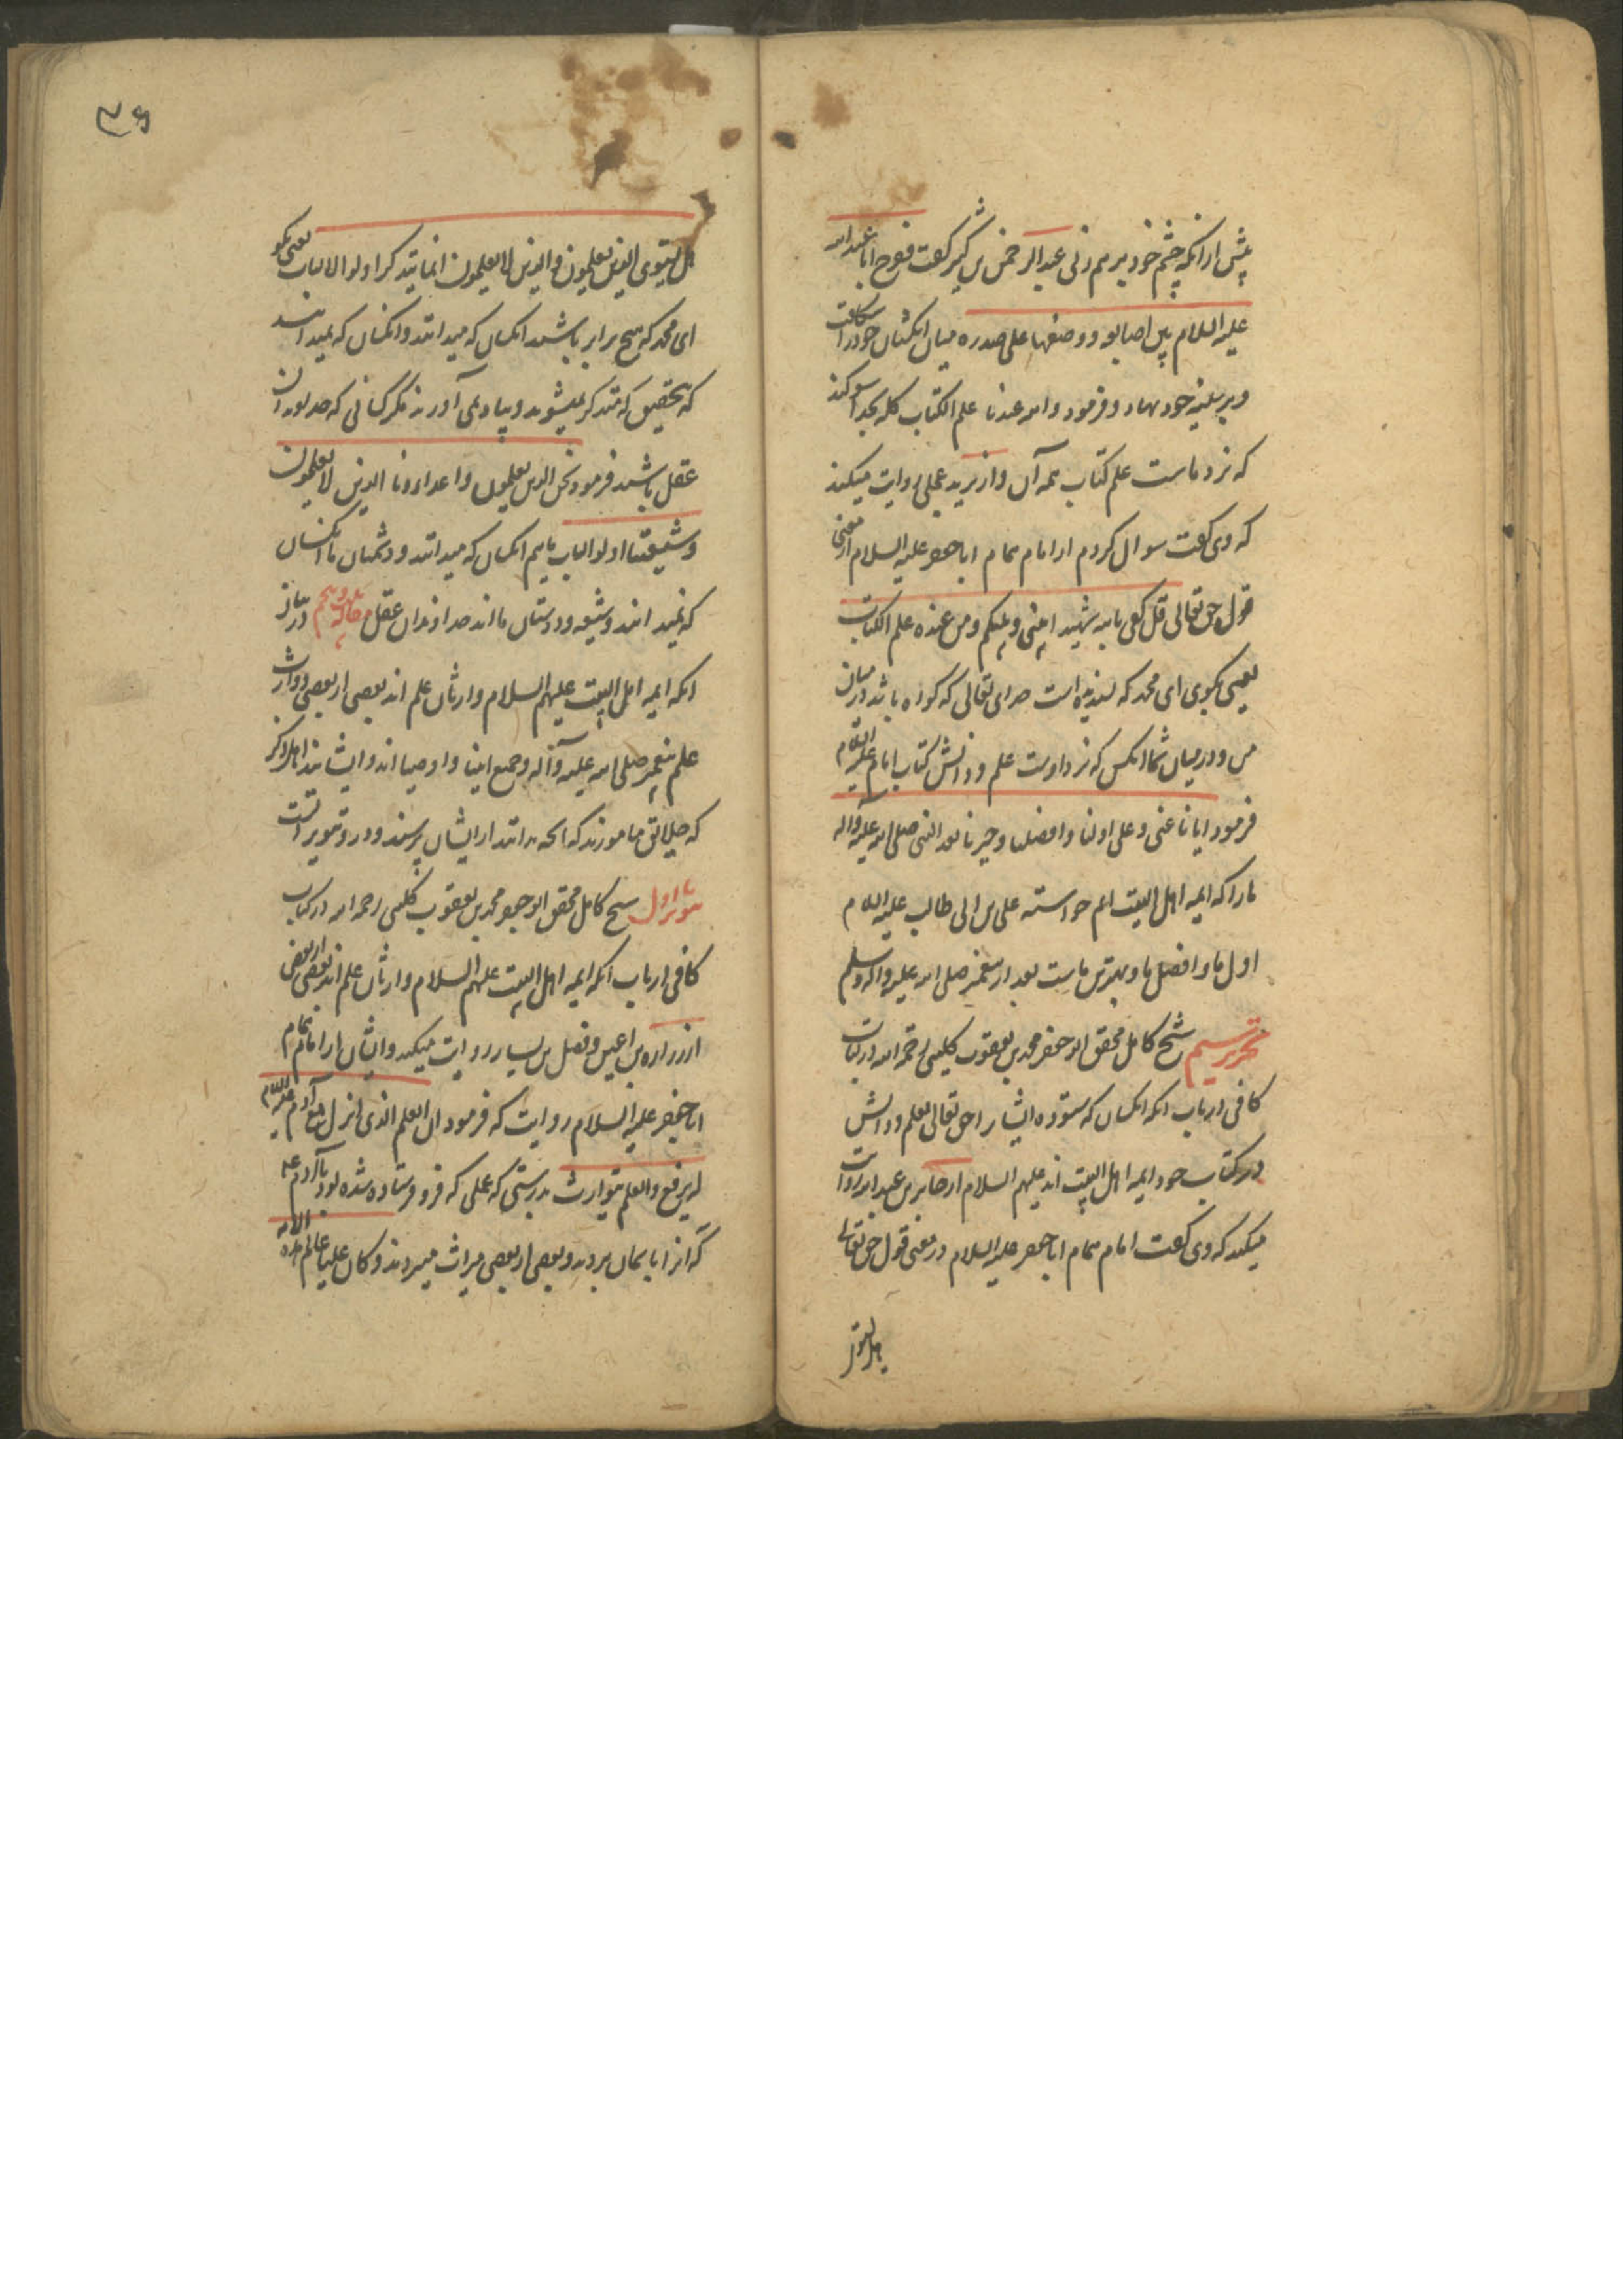 پیش از آنکه چشم خود برهم زنی عبدالرحمن بن کثیر گفت ففرج ابا عبد الله
علیه السلام بین اصابعه و وضعها علی صدره میان انگشتان خود را شکافت
و بر سینه خود نهاد و فرمود والله عندنا علم الکتاب کله بخدا سوگند
که نزد ماست علم کتاب همه آن و از برید عجلی روایت میکند
که وی گفت سوال کردم از امام همام ابا جعفر علیه السلام از معنی
قول حق تعالی قل کفی بالله شهیدا بینی و بینکم و من عنده علم الکتاب
یعنی بگوی ای محمد که بسنده است خدای تعالی که گواه باشد در میان
من و در میان شما آنکس که نزد اوست علم و دانش کتاب امام علیه السلام
فرمود ایانا عنی و علی اولنا و افضلنا و خیرنا بعد النبی صلی الله علیه و آله
ما را که ایمه اهل البیت ایم خواسته علی بن ابی طالب علیه السلام
اول ما و افضل ما و بهترین ماست بعد از پیغمبر صلی الله علیه و آله وسلم
تحریر سیم شیخ کامل محقق ابو جعفر محمد بن یعقوب کلینی رحمه الله در کتاب
کافی در باب انکه انکسان که ستوده ایشانرا حق تعالی بعلم و دانش
در کتاب خود ایمه اهل البیت اند علیهم السلام از جابر بن عبد الله روایت
میکند که وی گفت امام همام ابا جعفر علیه السلام در معنی قول حق تعالی
هل یستوی
هل یستوی الذین یعلمون والذین لا یعلمون انما یتذکر اولوا الالباب یعنی بگو
ای محمد که هیچ برابر باشند انکسان که میدانند و انکسان که نمیدانند
که بتحقیق که متذکر نمیشوند و بیاد نمی آورند مگر کسانی که خداوندان
عقل باشند فرمود نحن الذین یعلمون و اعداءونا الذین لا یعلمون
و شیعتنا اولوا الالباب ماییم انکسان که میدانند و دشمنان ما انکسان
که نمیدانند و شیعه و دوستان ما اند خداوندان عقل مقاله پنجم در بیان
انکه ایمه اهل البیت علیهم السلام وارثان علم اند بعضی از بعضی و وارث
علم پیغمبر صلی الله علیه و آله و جمیع انبیا و اوصیا اند و ایشانند اهل ذکر
که خلایق مامورند که انچه ندانند از ایشان پرسند و در و تنویر است
تنویر اول شیخ کامل محقق ابو جعفر محمد بن یعقوب کلینی رحمه الله در کتاب
کافی در باب انکه ایمه اهل البیت علیهم السلام وارثان علم اند بعضی از بعضی
از زراره بن اعین و فضل بن یسار روایت میکند و ایشان از امام همام
ابا جعفر علیه السلام روایت که فرمود ان العلم الذی انزل مع آدم علیه السلام
لم یرفع والعلم یتوارث بدرستی که علمی که فرو فرستاده شده بود با آدم ع
که انرا بآسمان نبردند و بعضی از بعضی میراث میبردند و کان علیا عالم هذه الامه